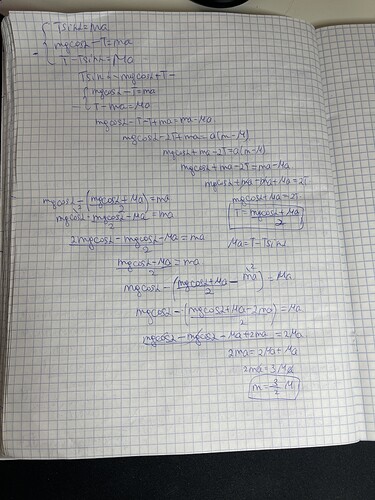 Tsinα=ma
mgcosα-T=ma
T-Tsinα=Ma
Tsinα-mgcosα+T-
mgcosα-T=ma
T-ma=Ma
mgcosα-T-T+ma=ma-Ma
mgcosα-2T+ma=a(m-M)
mgcosα+ma-2T=a(m-M)
mgcosα+ma-2T=ma-Ma
mgcosα+ma-ma+Ma=2T
mgcosα+Ma=2T
T=mgcosα+Ma/2
mgcosα-(mgcosα+Ma)/2=ma
mgcosα-mgcosα-Ma/2=ma
2mgcosα-mgcosα-Ma/2=ma
Ma=T-Tsinα
mgcosα-Ma/2=ma
mgcosα-(mgcosα+Ma/2-ma)=Ma
mgcosα-(mgcosα+Ma-2ma)/2=Ma
mgcosα-mgcosα-Ma+2ma=2Ma
2ma=2Ma+Ma
2ma=3Ma
m=3/2M